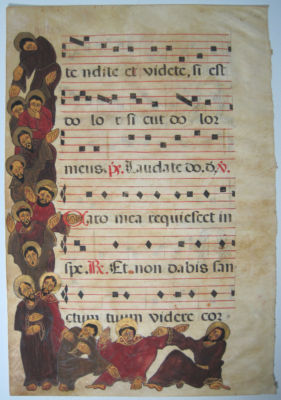 te ndite et videte, si est
do lo r si cut do lor
meus. ps. Laudate do. õ. V.
Caro mea requiescet in
spe. Re. Et. non dabis san
ctum tuum videre cor-